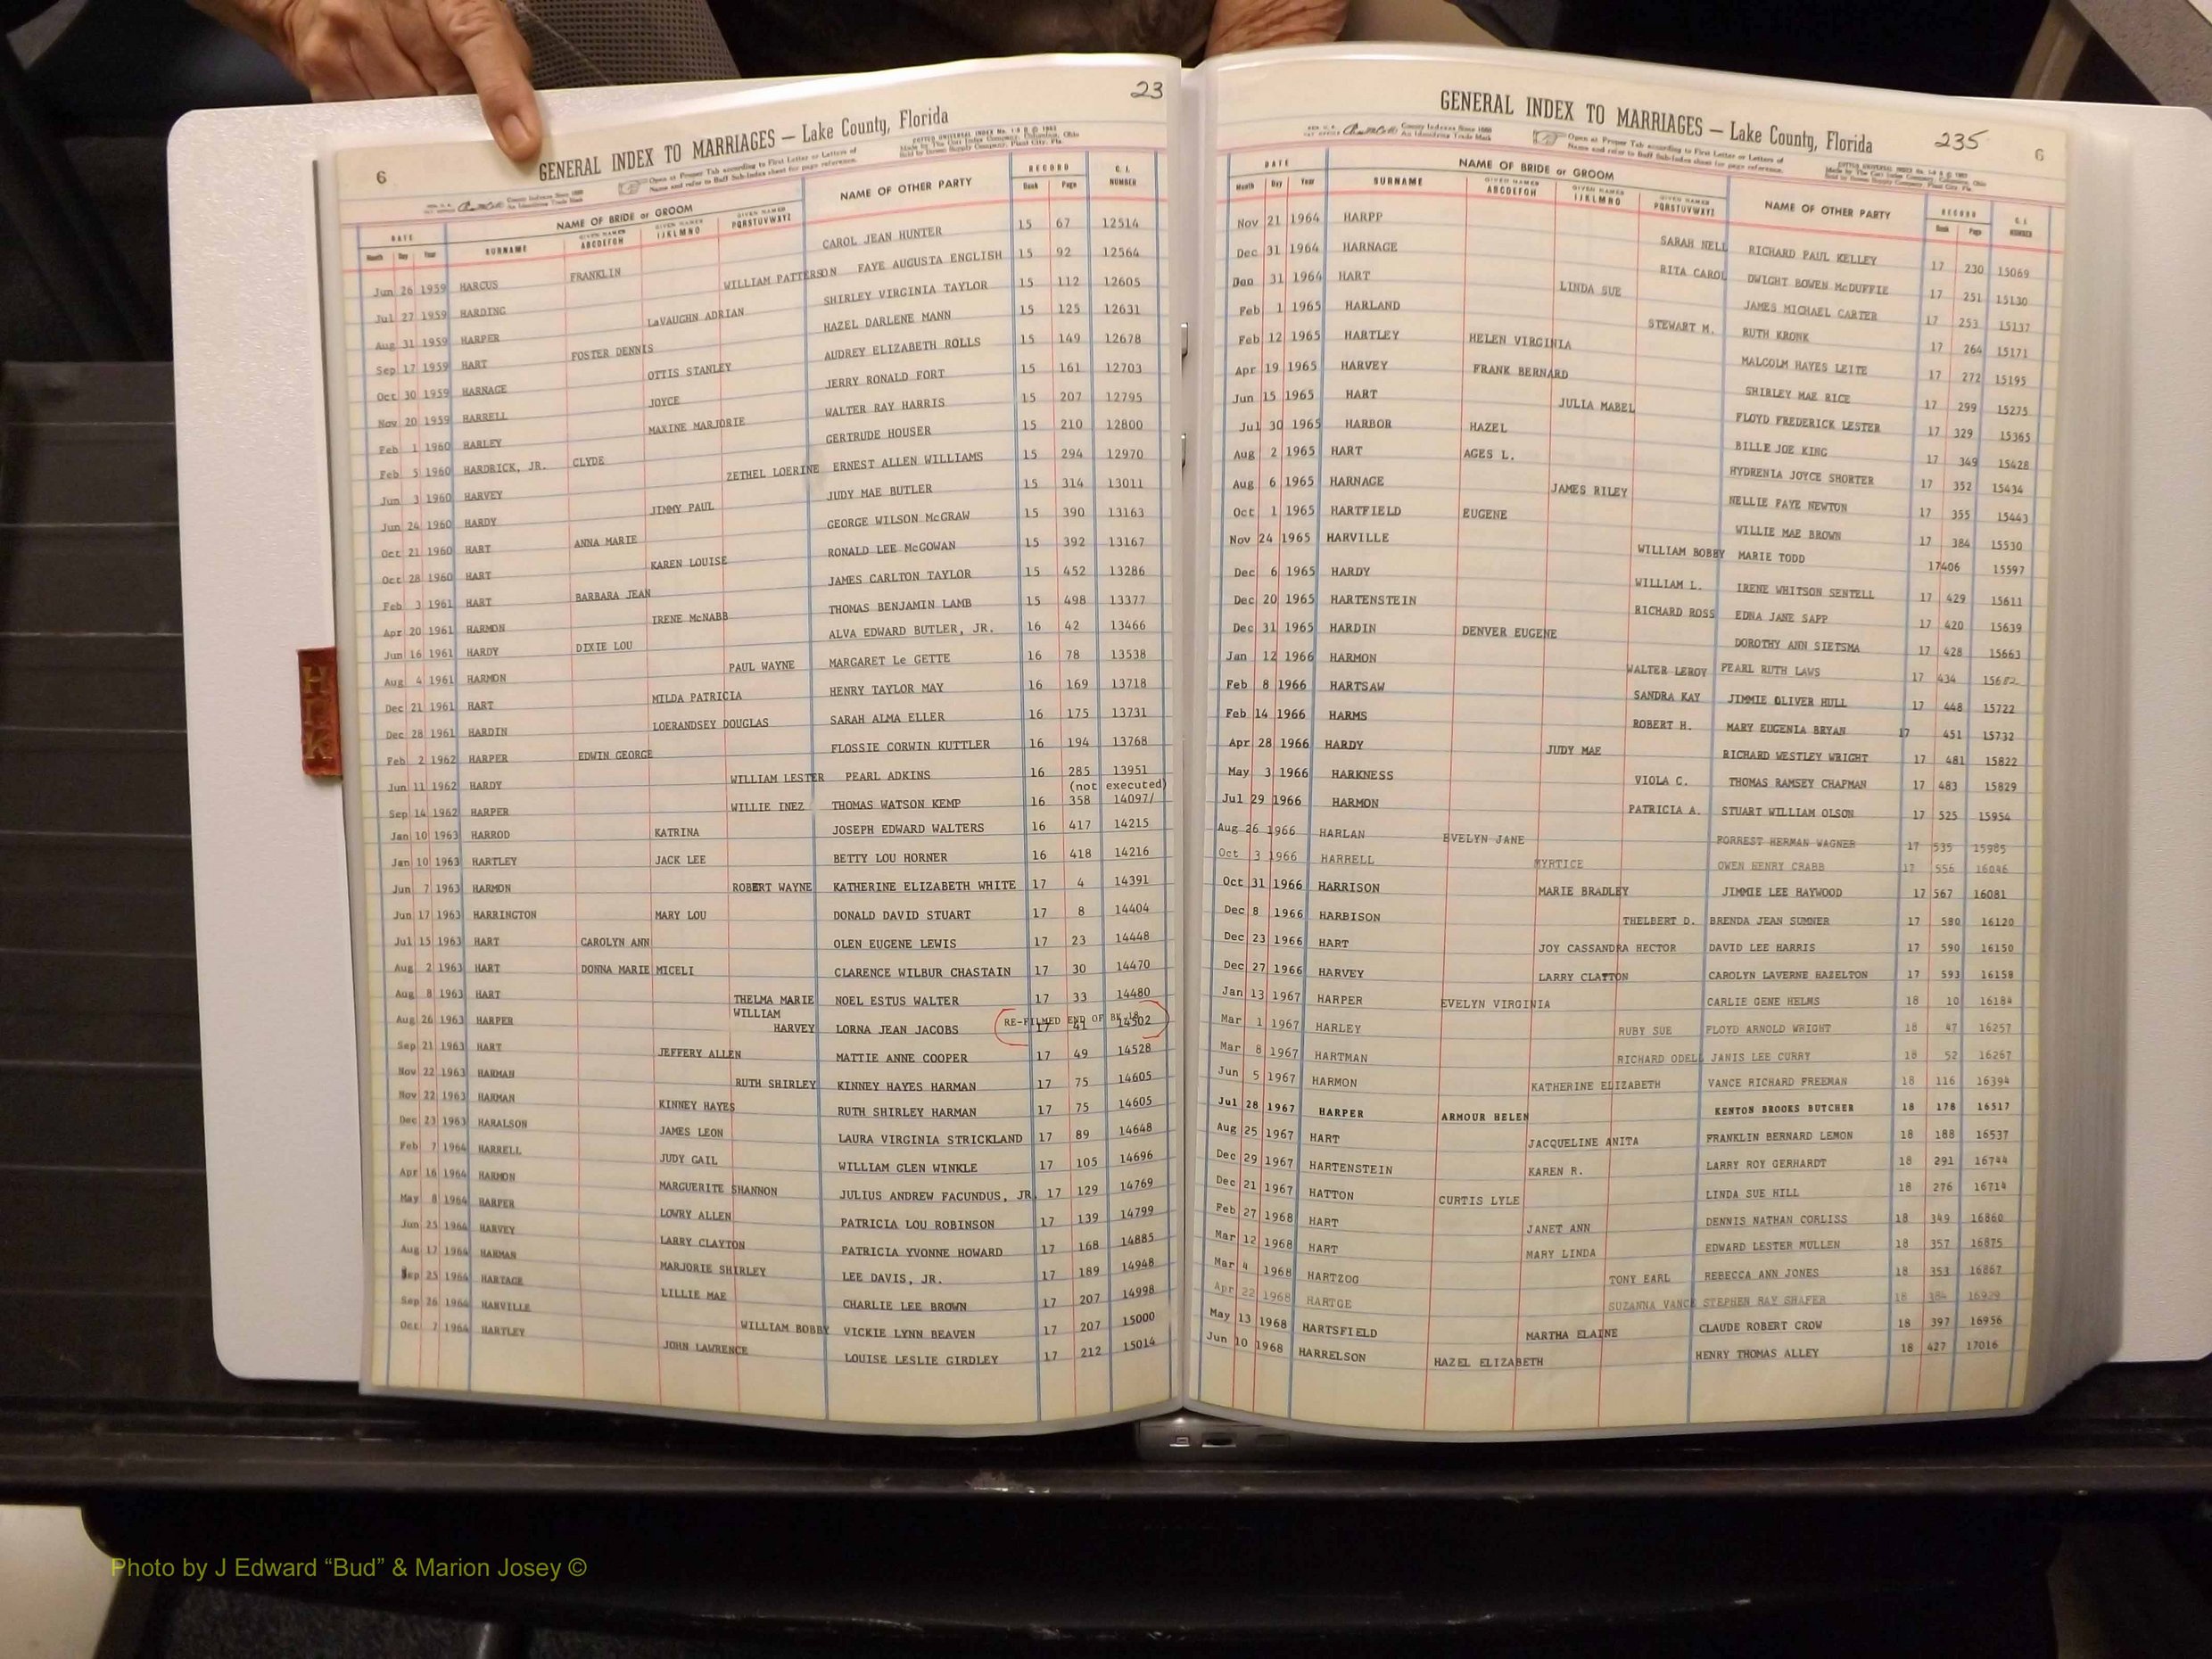 23
6
GENERAL INDEX TO MARRIAGES — Lake County, Florida
County Indexes Since 1888
An Identifying Trade Mark
Open at Proper Tab according to First Letter or Letters of
Name and refer to Buff Sub-Index sheet for page reference.
Made by The Cott Index Company, Columbus, Ohio
DATE NAME OF BRIDE or GROOM NAME OF OTHER PARTY RECORD C. I. NUMBER
Month Day Year SURNAME GIVEN NAMES ABCDEFGH GIVEN NAMES IJKLMNO GIVEN NAMES PQRSTUVWXYZ Book Page
Jun 26 1959 HARCUS FRANKLIN CAROL JEAN HUNTER 15 67 12514
Jul 27 1959 HARDING WILLIAM PATTERSON FAYE AUGUSTA ENGLISH 15 92 12564
Aug 31 1959 HARPER LaVAUGHN ADRIAN SHIRLEY VIRGINIA TAYLOR 15 112 12605
Sep 17 1959 HART FOSTER DENNIS HAZEL DARLENE MANN 15 125 12631
Oct 30 1959 HARNAGE OTTIS STANLEY AUDREY ELIZABETH ROLLS 15 149 12678
Nov 20 1959 HARRELL JOYCE JERRY RONALD FORT 15 161 12703
Feb 1 1960 HARLEY MAXINE MARJORIE WALTER RAY HARRIS 15 207 12795
Feb 5 1960 HARDRICK, JR. CLYDE GERTRUDE HOUSER 15 210 12800
Jun 3 1960 HARVEY ZETHEL LOERINE ERNEST ALLEN WILLIAMS 15 294 12970
Jun 24 1960 HARDY JIMMY PAUL JUDY MAE BUTLER 15 314 13011
Oct 21 1960 HART ANNA MARIE GEORGE WILSON McGRAW 15 390 13163
Oct 28 1960 HART KAREN LOUISE RONALD LEE McGOWAN 15 392 13167
Feb 3 1961 HART BARBARA JEAN JAMES CARLTON TAYLOR 15 452 13286
Apr 20 1961 HARMON IRENE McNABB THOMAS BENJAMIN LAMB 15 498 13377
Jun 16 1961 HARDY DIXIE LOU ALVA EDWARD BUTLER, JR. 16 42 13466
Aug 4 1961 HARMON PAUL WAYNE MARGARET Le GETTE 16 78 13538
Dec 21 1961 HART MILDA PATRICIA HENRY TAYLOR MAY 16 169 13718
Dec 28 1961 HARDIN LOERANDSEY DOUGLAS SARAH ALMA ELLER 16 175 13731
Feb 2 1962 HARPER EDWIN GEORGE FLOSSIE CORWIN KUTTLER 16 194 13768
Jun 11 1962 HARDY WILLIAM LESTER PEARL ADKINS 16 285 13951
(not executed)
Sep 14 1962 HARPER WILLIE INEZ THOMAS WATSON KEMP 16 358 14097/
Jan 10 1963 HARROD KATRINA JOSEPH EDWARD WALTERS 16 417 14215
Jan 10 1963 HARTLEY JACK LEE BETTY LOU HORNER 16 418 14216
Jun 7 1963 HARMON ROBERT WAYNE KATHERINE ELIZABETH WHITE 17 4 14391
Jun 17 1963 HARRINGTON MARY LOU DONALD DAVID STUART 17 8 14404
Jul 15 1963 HART CAROLYN ANN OLEN EUGENE LEWIS 17 23 14448
Aug 2 1963 HART DONNA MARIE MICELI CLARENCE WILBUR CHASTAIN 17 30 14470
Aug 8 1963 HART THELMA MARIE NOEL ESTUS WALTER 17 33 14480
WILLIAM RE-FILMED END OF BK 18
Aug 26 1963 HARPER HARVEY LORNA JEAN JACOBS 17 41 14502
Sep 21 1963 HART JEFFERY ALLEN MATTIE ANNE COOPER 17 49 14528
Nov 22 1963 HARMAN RUTH SHIRLEY KINNEY HAYES HARMAN 17 75 14605
Nov 22 1963 HARMAN KINNEY HAYES RUTH SHIRLEY HARMAN 17 75 14605
Dec 23 1963 HARALSON JAMES LEON LAURA VIRGINIA STRICKLAND 17 89 14648
Feb 7 1964 HARRELL JUDY GAIL WILLIAM GLEN WINKLE 17 105 14696
Apr 16 1964 HARMON MARGUERITE SHANNON JULIUS ANDREW FACUNDUS, JR. 17 129 14769
May 8 1964 HARPER LOWRY ALLEN PATRICIA LOU ROBINSON 17 139 14799
Jun 25 1964 HARVEY LARRY CLAYTON PATRICIA YVONNE HOWARD 17 168 14885
Aug 17 1964 HARMAN MARJORIE SHIRLEY LEE DAVIS, JR. 17 189 14948
Sep 25 1964 HARTAGE LILLIE MAE CHARLIE LEE BROWN 17 207 14998
Sep 26 1964 HARVILLE WILLIAM BOBBY VICKIE LYNN BEAVEN 17 207 15000
Oct 7 1964 HARTLEY JOHN LAWRENCE LOUISE LESLIE GIRDLEY 17 212 15014
H I J K
GENERAL INDEX TO MARRIAGES — Lake County, Florida 235 6
County Indexes Since 1888
An Identifying Trade Mark
Open at Proper Tab according to First Letter or Letters of
Name and refer to Buff Sub-Index sheet for page reference.
DATE NAME OF BRIDE or GROOM NAME OF OTHER PARTY RECORD C. I. NUMBER
Month Day Year SURNAME GIVEN NAMES ABCDEFGH GIVEN NAMES IJKLMNO GIVEN NAMES PQRSTUVWXYZ Book Page
Nov 21 1964 HARPP SARAH NELL RICHARD PAUL KELLEY 17 230 15069
Dec 31 1964 HARNAGE RITA CAROL DWIGHT BOWEN McDUFFIE 17 251 15130
Den 31 1964 HART LINDA SUE JAMES MICHAEL CARTER 17 253 15137
Feb 1 1965 HARLAND STEWART M. RUTH KRONK 17 264 15171
Feb 12 1965 HARTLEY HELEN VIRGINIA MALCOLM HAYES LEITE 17 272 15195
Apr 19 1965 HARVEY FRANK BERNARD SHIRLEY MAE RICE 17 299 15275
Jun 15 1965 HART JULIA MABEL FLOYD FREDERICK LESTER 17 329 15365
Jul 30 1965 HARBOR HAZEL BILLE JOE KING 17 349 15428
Aug 2 1965 HART AGES L. HYDRENIA JOYCE SHORTER 17 352 15434
Aug 6 1965 HARNAGE JAMES RILEY NELLIE FAYE NEWTON 17 355 15443
Oct 1 1965 HARTFIELD EUGENE WILLIE MAE BROWN 17 384 15530
Nov 24 1965 HARVILLE WILLIAM BOBBY MARIE TODD 17406 15597
Dec 6 1965 HARDY WILLIAM L. IRENE WHITSON SENTELL 17 429 15611
Dec 20 1965 HARTENSTEIN RICHARD ROSS EDNA JANE SAPP 17 420 15639
Dec 31 1965 HARDIN DENVER EUGENE DOROTHY ANN SIETSMA 17 428 15663
Jan 12 1966 HARMON WALTER LEROY PEARL RUTH LAWS 17 434 15682
Feb 8 1966 HARTSAW SANDRA KAY JIMMIE OLIVER HULL 17 448 15722
Feb 14 1966 HARMS ROBERT H. MARY EUGENIA BRYAN 17 451 15732
Apr 28 1966 HARDY JUDY MAE RICHARD WESTLEY WRIGHT 17 481 15822
May 3 1966 HARKNESS VIOLA C. THOMAS RAMSEY CHAPMAN 17 483 15829
Jul 29 1966 HARMON PATRICIA A. STUART WILLIAM OLSON 17 525 15954
Aug 26 1966 HARLAN EVELYN JANE FORREST HERMAN WAGNER 17 535 15985
Oct 3 1966 HARRELL MYRTICE OWEN HENRY CRABB 17 556 16046
Oct 31 1966 HARRISON MARIE BRADLEY JIMMIE LEE HAYWOOD 17 567 16081
Dec 8 1966 HARBISON THELBERT D. BRENDA JEAN SUMNER 17 580 16120
Dec 23 1966 HART JOY CASSANDRA HECTOR DAVID LEE HARRIS 17 590 16150
Dec 27 1966 HARVEY LARRY CLATTON CAROLYN LAVERNE HAZELTON 17 593 16158
Jan 13 1967 HARPER EVELYN VIRGINIA CARLIE GENE HELMS 18 10 16184
Mar 1 1967 HARLEY RUBY SUE FLOYD ARNOLD WRIGHT 18 47 16257
Mar 8 1967 HARTMAN RICHARD ODELL JANIS LEE CURRY 18 52 16267
Jun 5 1967 HARMON KATHERINE ELIZABETH VANCE RICHARD FREEMAN 18 116 16394
Jul 28 1967 HARPER ARMOUR HELEN KENTON BROOKS BUTCHER 18 178 16517
Aug 25 1967 HART JACQUELINE ANITA FRANKLIN BERNARD LEMON 18 188 16537
Dec 29 1967 HARTENSTEIN KAREN R. LARRY ROY GERHARDT 18 291 16744
Dec 21 1967 HATTON CURTIS LYLE LINDA SUE HILL 18 276 16714
Feb 27 1968 HART JANET ANN DENNIS NATHAN CORLISS 18 349 16860
Mar 12 1968 HART MARY LINDA EDWARD LESTER MULLEN 18 357 16875
Mar 4 1968 HARTZOG TONY EARL REBECCA ANN JONES 18 353 16867
Apr 22 1968 HARTGE SUZANNA VANCE STEPHEN RAY SHAFER 18 384 16929
May 13 1968 HARTSFIELD MARTHA ELAINE CLAUDE ROBERT CROW 18 397 16956
Jun 10 1968 HARRELSON HAZEL ELIZABETH HENRY THOMAS ALLEY 18 427 17016
Photo by J Edward “Bud” & Marion Josey ©